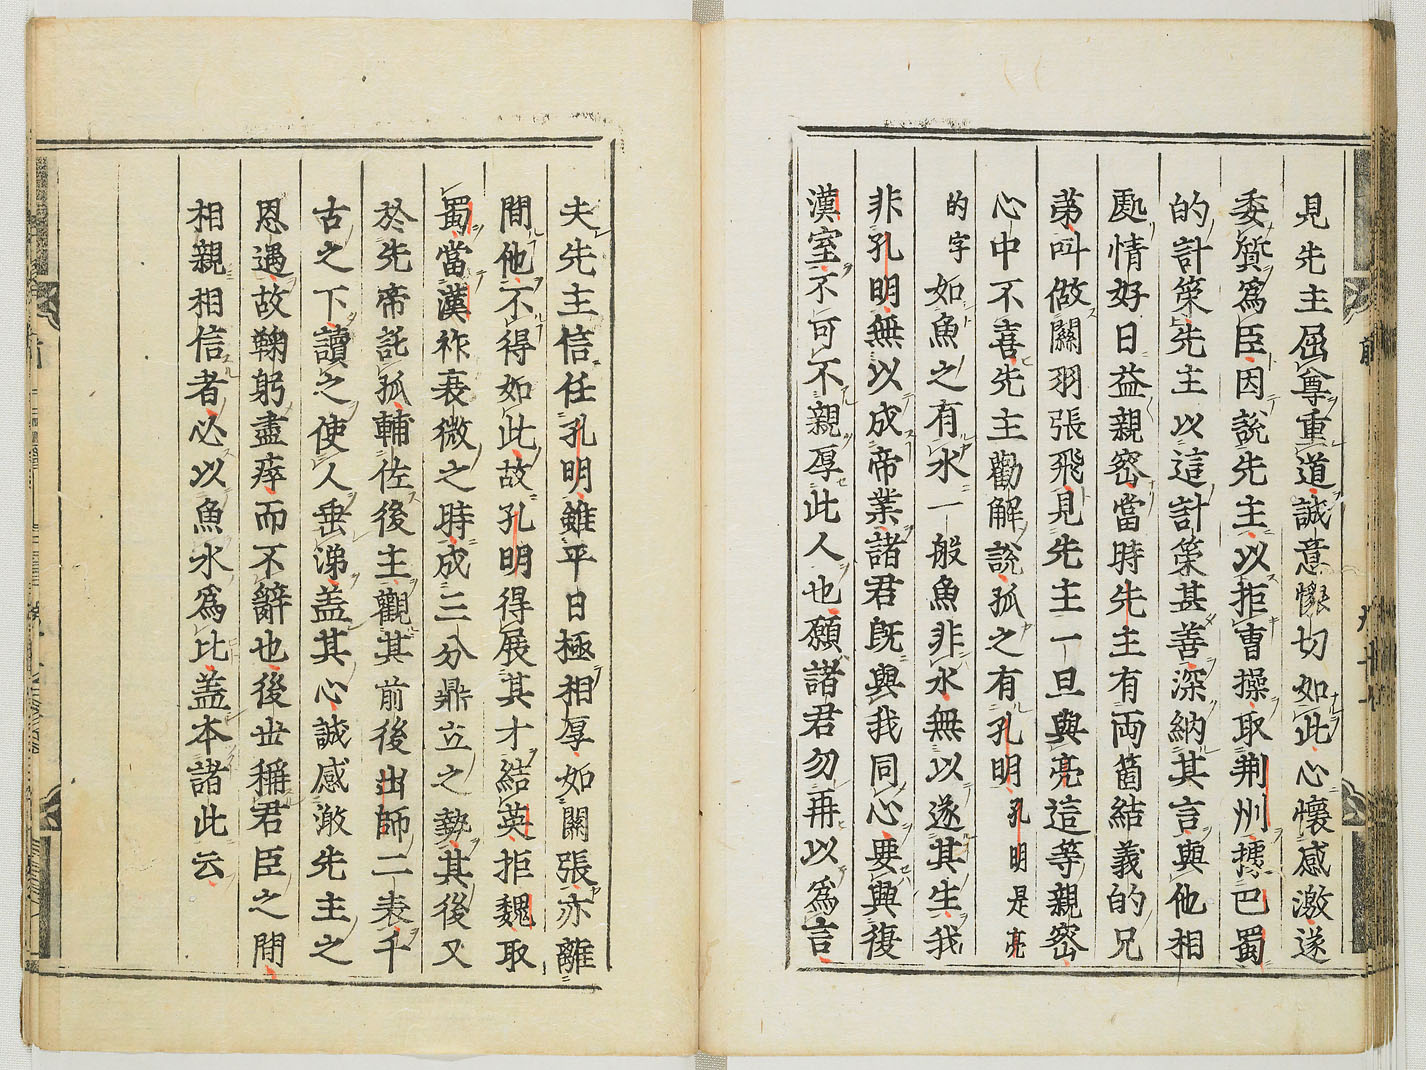 見先主屈尊重道誠意懇切如此心懷感激遂
委質爲臣因說先主以拒曹操取荆州據巴蜀
的計策先主以這計策甚善深納其言與他相
處情好日益親密當時先主有両箇結義的兄
苐叫做關羽張飛見先主一旦與亮這等親密
心中不喜先主勸解說孤之有孔明孔明是亮
的字如魚之有水一般魚非水無以遂其生我
非孔明無以成帝業諸君既與我同心要興復
漢室不可不親厚此人也願諸君勿再以爲言
夫先主信任孔明雖平日極相厚如關張亦離
間他不得如此故孔明得展其才結英拒魏取
蜀當漢祚衰微之時成三分鼎立之勢其後又
於先帝託孤輔佐後主觀其前後出師二表千
古之下讀之使人垂涕盖其心誠感激先主之
恩遇故鞠躬盡瘁而不辭也後世稱君臣之間
相親相信者必以魚水爲比盖本諸此云